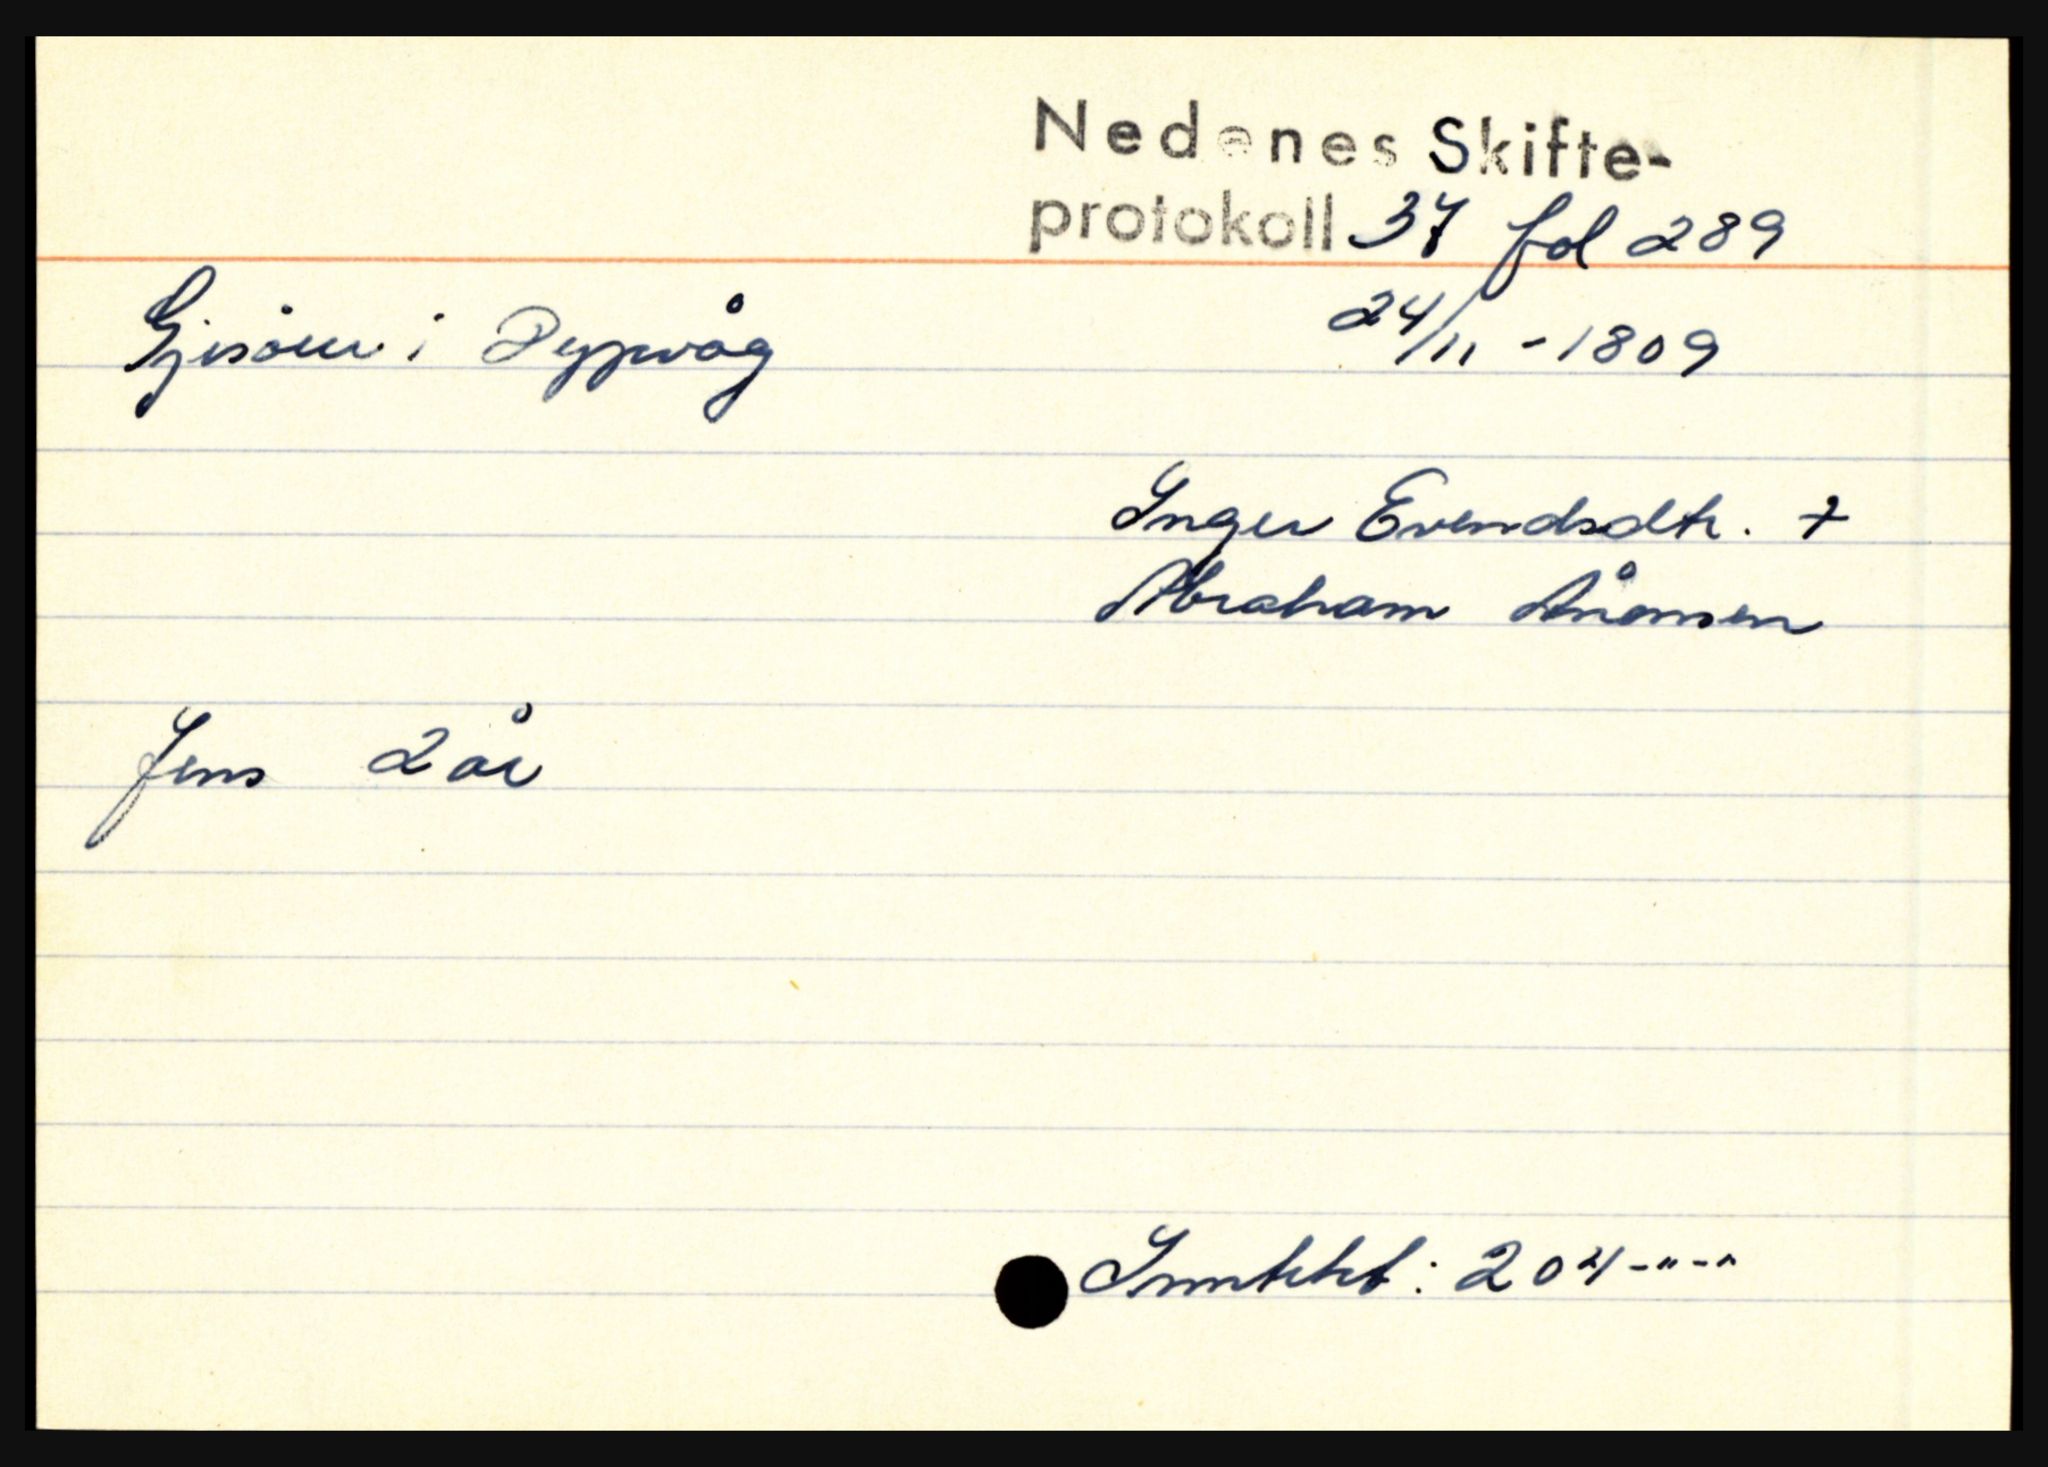 Nedenes Skifte-
protokoll 37 fol 289
Gjesåen i Dypvåg
24/11 - 1809
Inger Evendsdtr. +
Abraham Ånonsen
Jens 2 år
Inntkt: 204-"-"